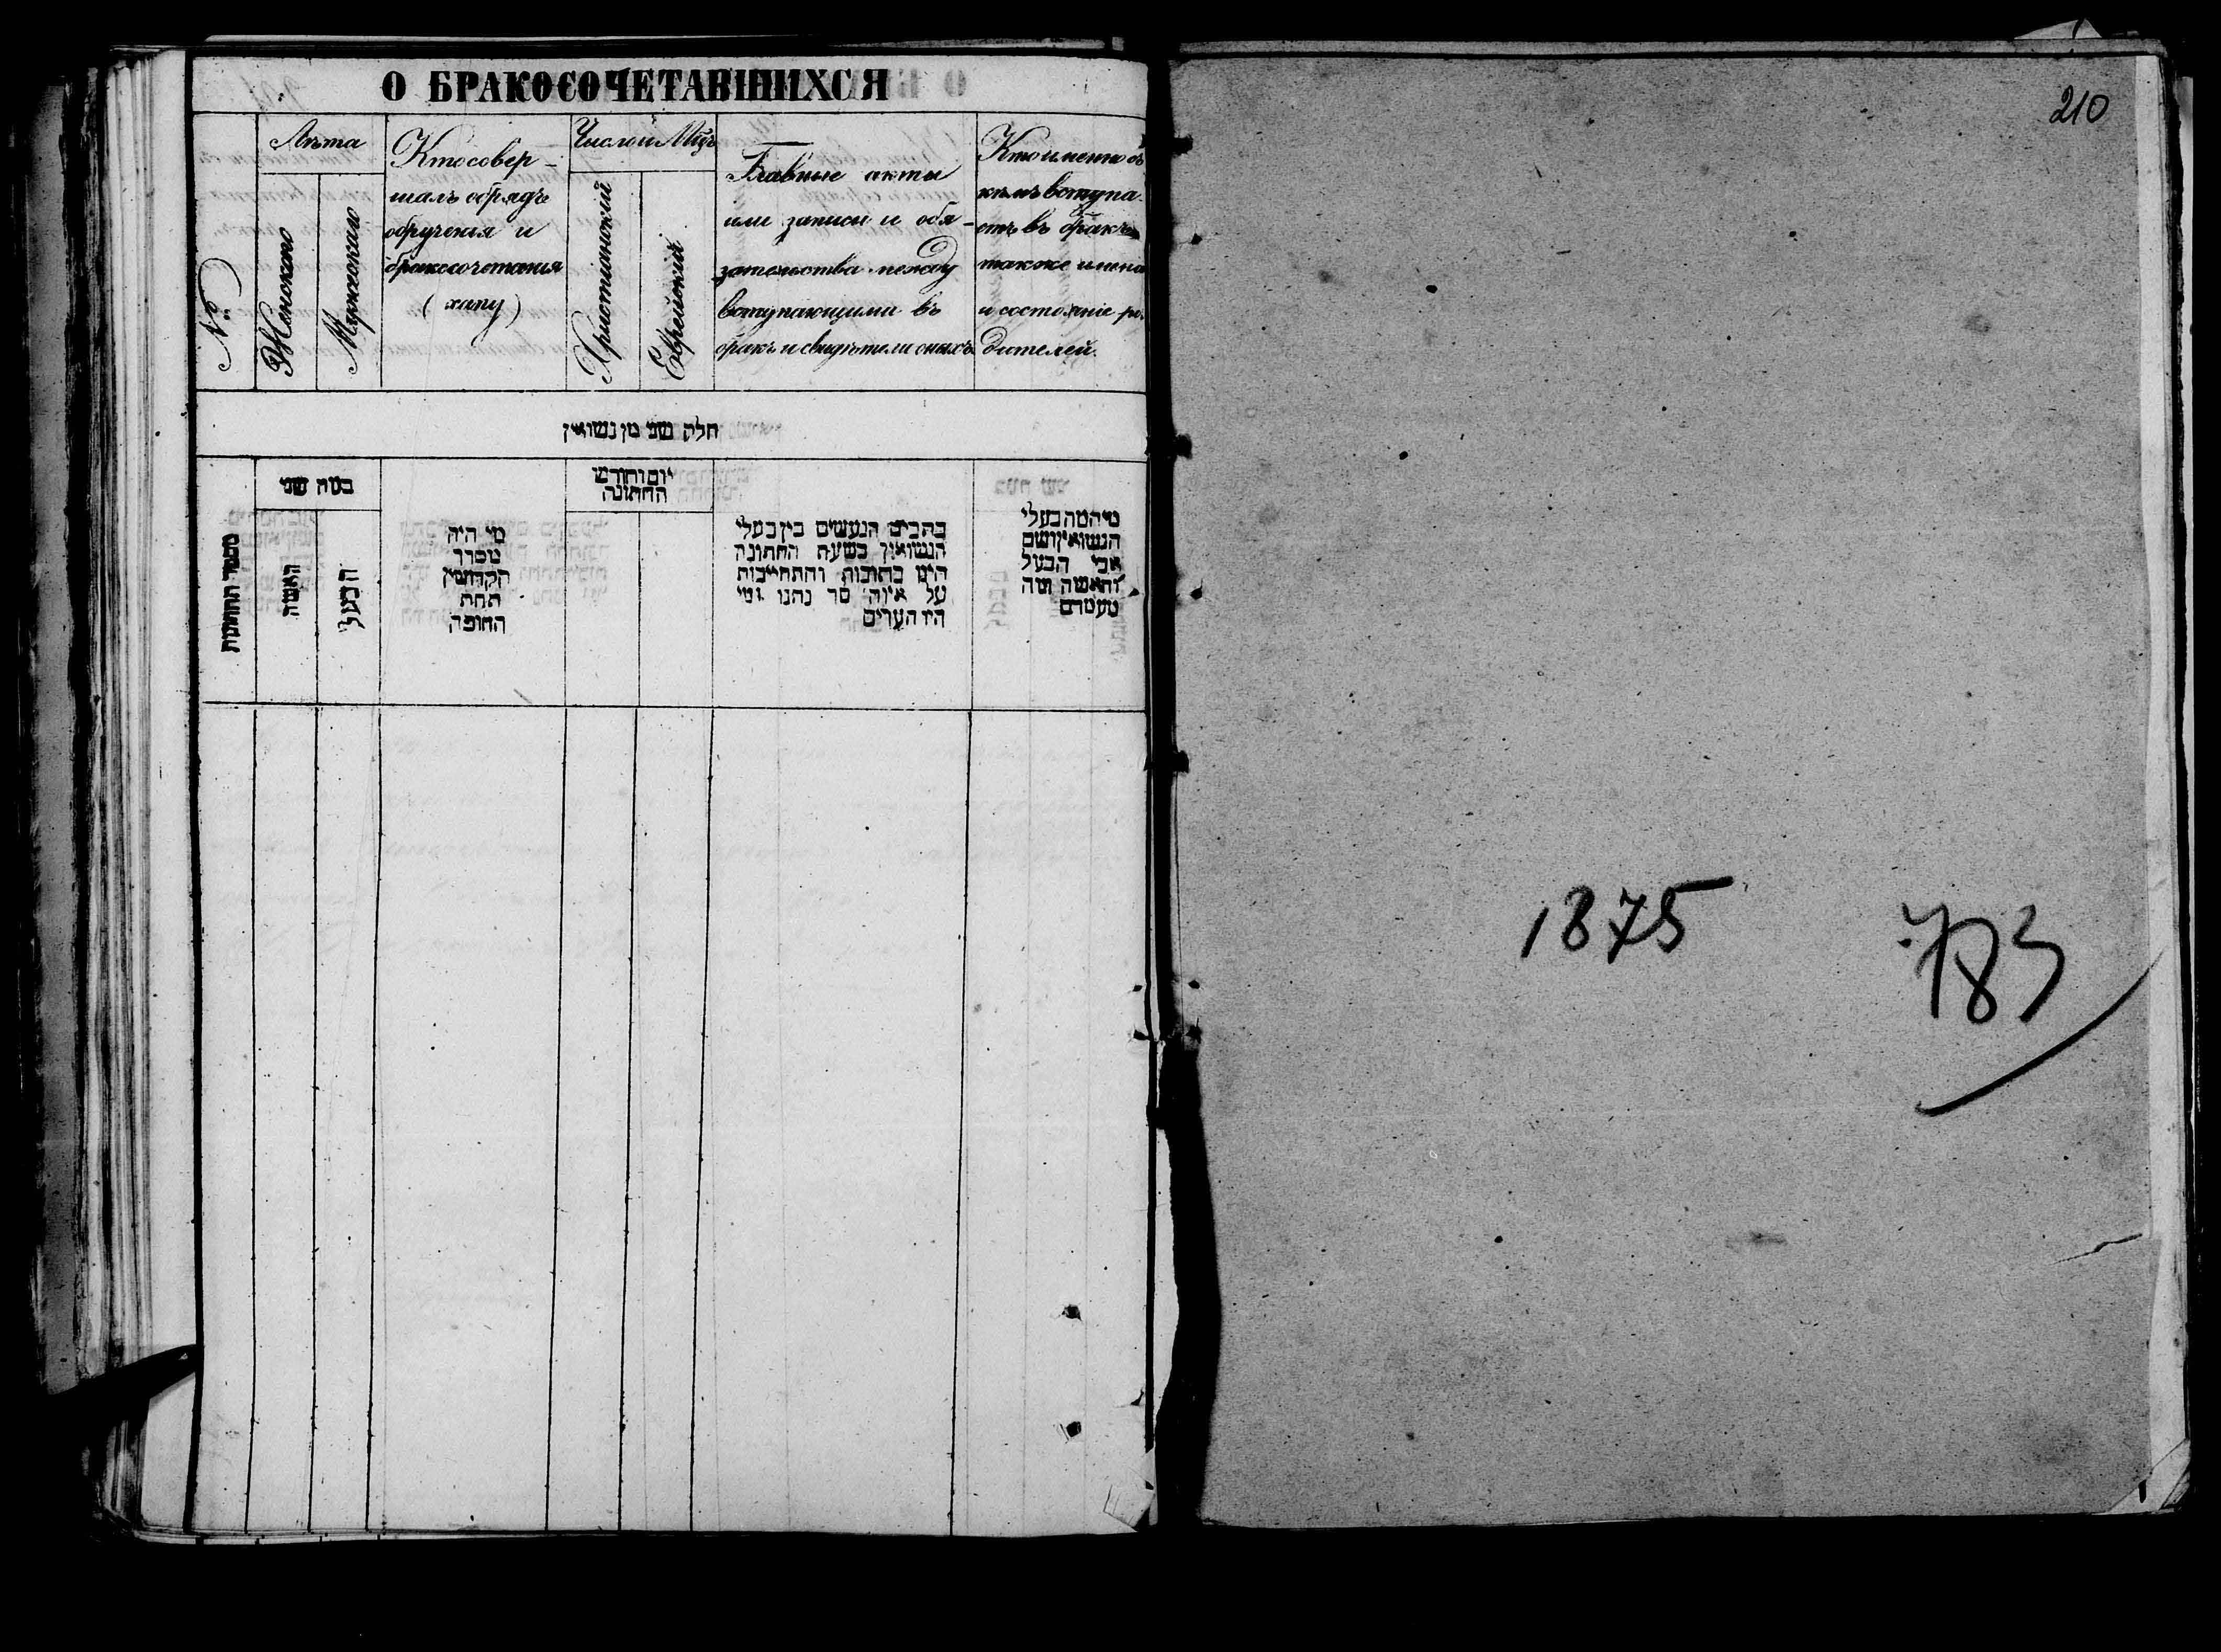 О БРАКОСОЧЕТАВШИХСЯ
№
Лѣта
Женского
Мужеского
Кто совер-
шалъ обрядъ
обрученія и
бракосочетанія
(хапу)
Число и Мцъ
Христіанскій
Еврейскій
Главные акты
или записи и обя-
зательства между
вступающими въ
бракъ и свидѣтели оныхъ.
Кто именно съ
кѣмъ вступа-
етъ въ бракъ
также имена
и состояніе ро-
дителей.
חלק שני מן נשואין
מספר החתונות
במה שני
האשה
הבעל
מי היה
מסדר
הקדושין
תחת
החופה
יום וחודש
החתונה
כתבים הנעשים בין בעלי
הנשואין בשעת החתונה
היינו כתובות והתחייבות
על איזה סך נתנו ומי
היו העדים
מי המה בעלי
הנשואין ושם
אבי הבעל
והאשה ומה
מעמדם
210
1875
783